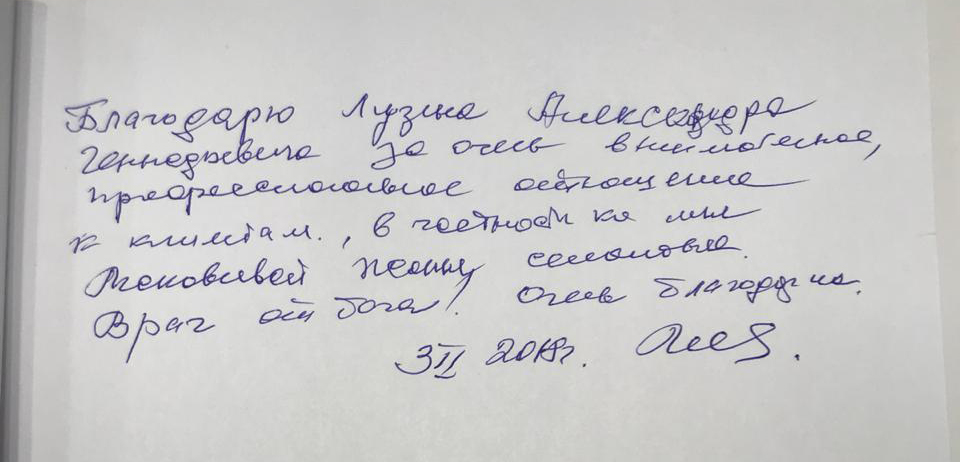 Благодарю Лузина Александра
Геннадьевича за очень внимательное,
профессиональное отношение
к клиентам., в частности ко мне
Жанны Семеновны.
Врач от бога! Очень благодарна.
3 II 2018г.